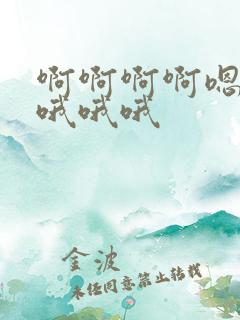 啊啊啊啊嗯
哦哦哦
金波
未经同意禁止转载